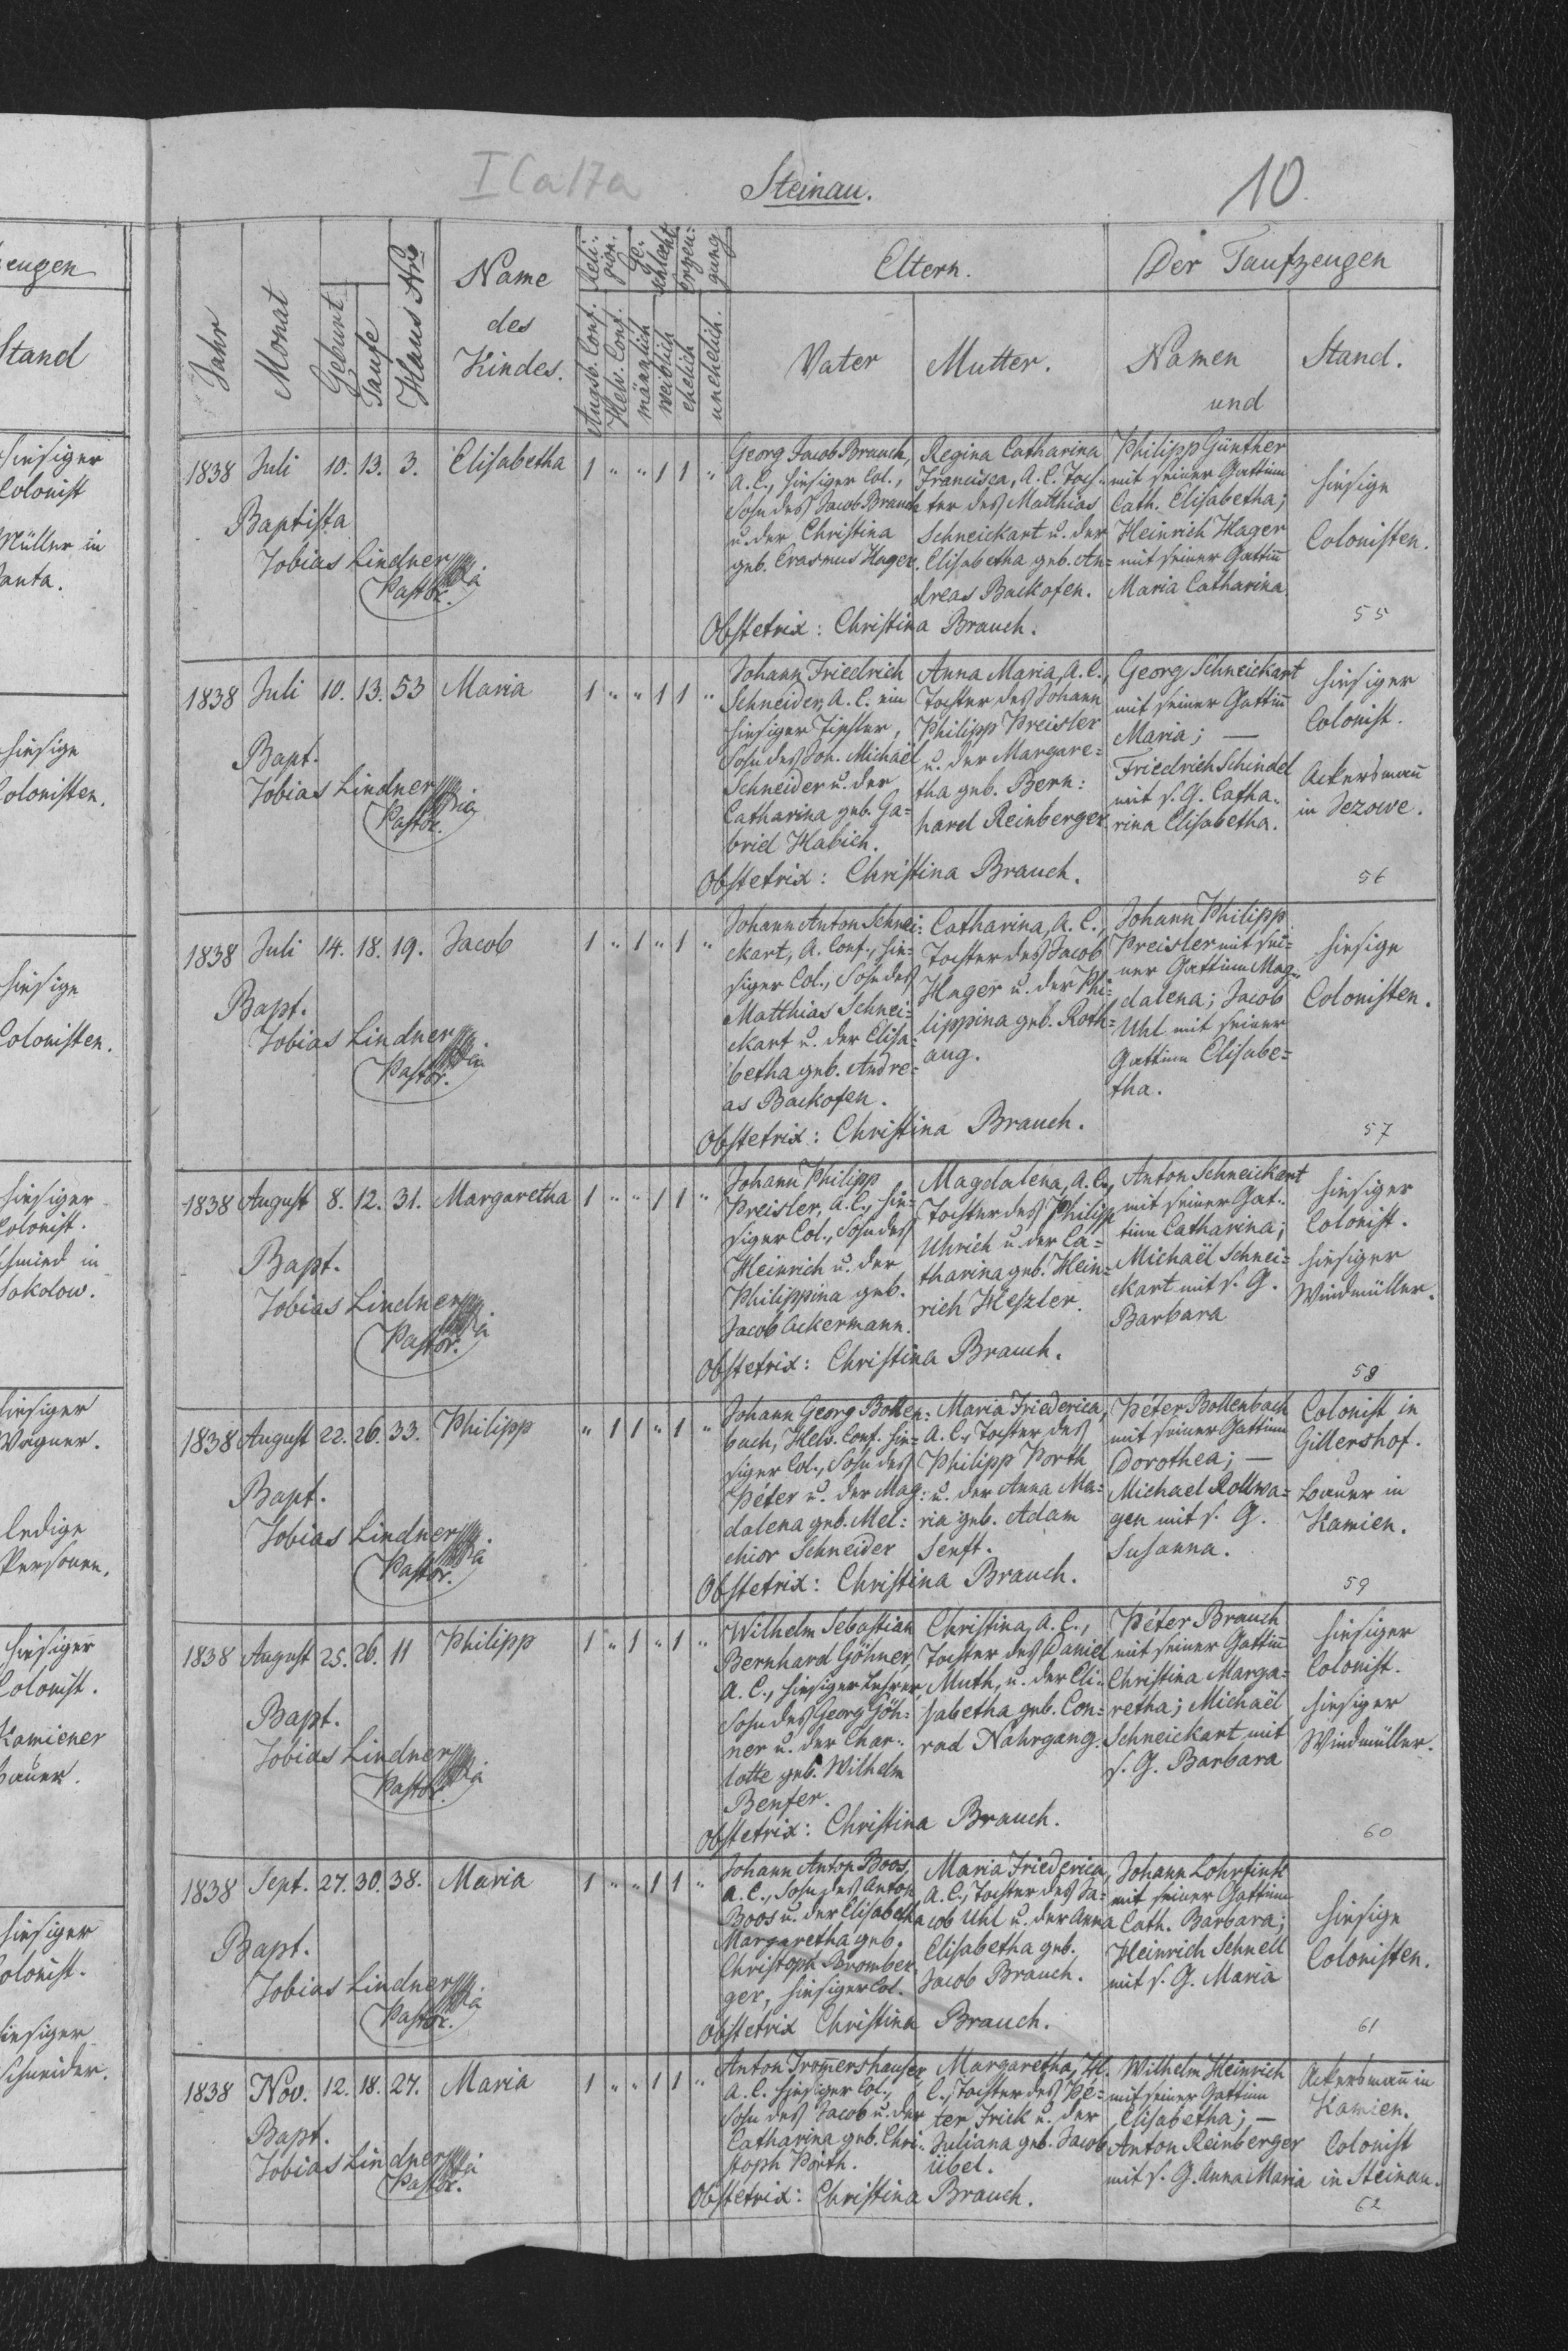 I Ca 17a
Steinau.
10
Jahr
Monat
Geburt
Taufe
Haus Nro
Name
des
Kindes.
Reli-
gion.
Ge-
schlecht
Augsb. Conf.
Helv. Conf.
männlich
weiblich
ehelich
unehelich.
Eltern.
Vater
Mutter.
Der Taufzeugen
Namen
und
Stand.
1838 Juli 10. 13. 3. Elisabetha 1 " " 1 1 "
Baptista
Tobias Lindner
Pastor.
Georg Jacob Brauch,
A. C., hiesiger Col.,
Sohn des Jacob Brauch
u. der Christina
geb. Erasmus Hager.
Regina Catharina
Francisca, A. C. Toch-
ter des Matthias
Schneickart u. der
Elisabetha geb. An=
dreas Backofen.
Philipp Günther
mit seiner Gattinn
Cath. Elisabetha;
Heinrich Hager
mit seiner Gattiñ
Maria Catharina
hiesige
Colonisten.
Obstetrix: Christina Brauch.
55
1838 Juli 10. 13. 53 Maria 1 " " 1 1 "
Bapt.
Tobias Lindner
Pastor.
Johann Friedrich
Schneider, A. C. ein
hiesiger Tischler,
Sohn des Joh. Michaël
Schneider u. der
Catharina geb. Ga=
briel Habich.
Anna Maria, A. C.,
Tochter des Johann
Philipp Preisler
u. der Margare=
tha geb. Bern:
hard Reinberger
Georg Schneickart
mit seiner Gattiñ
Maria; —
Friedrich Schindel
mit s. G. Catha-
rina Elisabetha.
hiesiger
Colonist.
Ackersmañ
in Jezowe.
Obstetrix: Christina Brauch.
56
1838 Juli 14. 18. 19. Jacob 1 " 1 " 1 "
Bapt.
Tobias Lindner
Pastor.
Johann Anton Schnei:
ckart, A. Conf., hie=
siger Col., Sohn des
Matthias Schnei=
ckart u. der Elisa=
betha geb. Andre=
as Backofen.
Catharina, A. C.,
Tochter des Jacob
Hager u. der Phi=
lippina geb. Roth=
aug.
Johann Philipp
Preisler mit sei=
ner Gattinn Mag-
dalena; Jacob
Uhl mit seiner
Gattinn Elisabe=
tha.
hiesige
Colonisten.
Obstetrix: Christina Brauch.
57
1838 August 8. 12. 31. Margaretha 1 " " 1 1 "
Bapt.
Tobias Lindner
Pastor.
Johann Philipp
Preisler, A. C., hie=
siger Col., Sohn des
Heinrich u. der
Philippina geb.
Jacob Ackermann.
Magdalena, A. C.,
Tochter des Philipp
Uhrich u. der Ca=
tharina geb. Hein=
rich Heszler.
Anton Schneickart
mit seiner Gat-
tinn Catharina;
Michaël Schnei=
ckart mit s. G.
Barbara
hiesiger
Colonist.
hiesiger
Windmüller.
Obstetrix: Christina Brauch.
58
1838 August 22. 26. 33. Philipp " 1 1 " 1 "
Bapt.
Tobias Lindner
Pastor.
Johann Georg Bollen=
bach, Helv. Conf. hie=
siger Col., Sohn des
Péter u. der Mag:
dalena geb. Mel=
chior Schneider
Maria Friederica,
A. C., Tochter des
Philipp Porth
u. der Anna Ma=
ria geb. Adam
Senft.
Péter Bollenbach
mit seiner Gattinn
Dorothea; —
Michael Rollwa=
gen mit s. G.
Susanna.
Colonist in
Gillershof.
Bauer in
Kamien.
Obstetrix: Christina Brauch.
59
1838 August 25. 26. 11 Philipp 1 " 1 " 1 "
Bapt.
Tobias Lindner
Pastor.
Wilhelm Sebastian
Bernhard Göhner,
A. C., hiesiger Lehrer,
Sohn des Georg Göh=
ner u. der Char-
lotte geb. Wilhelm
Benfer.
Christina, A. C.,
Tochter des Daniel
Muth, u. der Eli-
sabetha geb. Con=
rad Nahrgang.
Péter Brauch
mit seiner Gattiñ
Christina Marga=
retha; Michaël
Schneickart mit
s. G. Barbara
hiesiger
Colonist.
hiesiger
Windmüller.
Obstetrix: Christina Brauch.
60
1838 Sept. 27. 30. 38. Maria 1 " " 1 1 "
Bapt.
Tobias Lindner
Pastor.
Johann Anton Boos,
A. C., Sohn des Anton
Boos u. der Elisabetha
Margaretha geb.
Christoph Bromber
ger, hiesiger Col.
Maria Friederica,
A. C., Tochter des Ja=
cob Uhl u. der Anna
Elisabetha geb.
Jacob Brauch.
Johann Lohrfink
mit seiner Gattinn
Cath. Barbara;
Heinrich Schnell
mit s. G. Maria
hiesige
Colonisten.
Obstetrix Christina Brauch.
61
1838 Nov. 12. 18. 27. Maria 1 " " 1 1 "
Bapt.
Tobias Lindner
Pastor.
Anton Trom̃ershauser
A. C. hiesiger Col.,
Sohn des Jacob u. der
Catharina geb. Chri-
stoph Porth.
Margaretha, H.
C., Tochter des Pé=
ter Frick u. der
Juliana geb. Jacob
Übel.
Wilhelm Heinrich
mit seiner Gattinn
Elisabetha; —
Anton Reinberger
mit s. G. Anna Maria
Ackersmañ in
Kamien.
Colonist
in Steinau.
Obstetrix: Christina Brauch.
62
zeugen
Stand
hiesiger
Colonist
Müller in
hiesige
Colonisten.
hiesige
Colonisten.
hiesiger
Colonist.
Schmied in
Sokolow.
hiesiger
Wagner.
ledige
Personen.
hiesiger
Colonist.
Kamiener
Bauer.
hiesiger
Colonist.
hiesiger
Schneider.